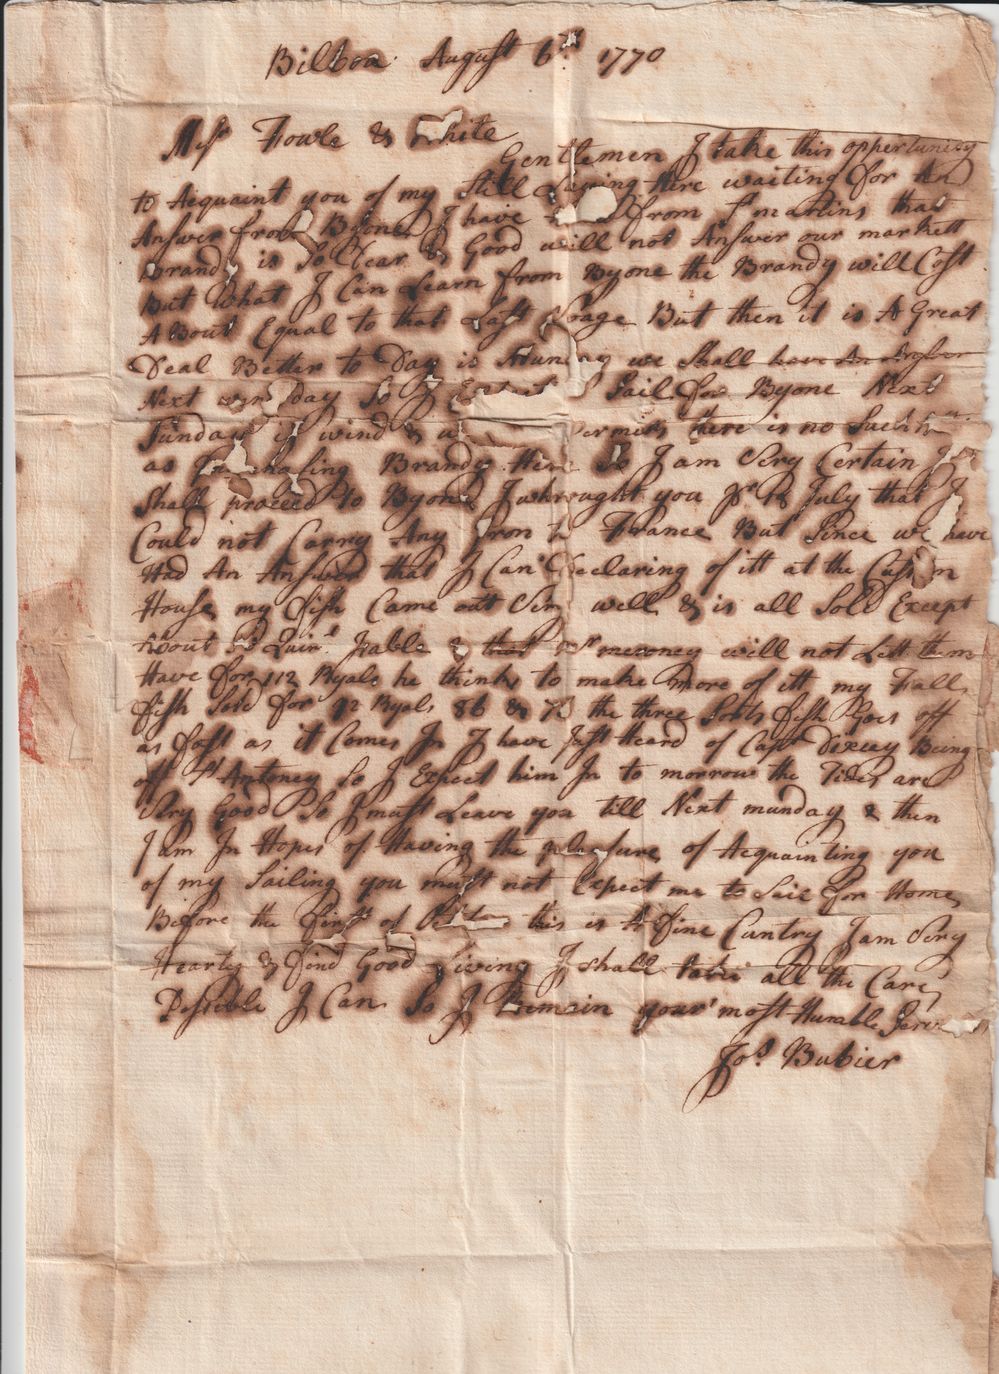 Bilboa August 6th 1770
Mess Fowle & White
Gentlemen I take this opportunity
to Acquaint you of my Still Laying Here waiting for An
Answer from Byone I have from St martins that
Brandy is So Dear & Good will not Answer our markett
But what I Can Learn from Byone the Brandy will Cost
About Equal to that Last Voage But then it is A Great
Deal Better to Day is Munday we Shall have An Answer
Next day So I Expect to Sail for Byone Next
Sunday if wind & permits there is no Such
as Purchasing Brandy Here So I am Very Certain I
Shall proceed to Byone I whrought you 12 July that I
Could not Carry Any Iron to France But Since we have
Had An Answer that I Can Declaring of itt at the Custom
House my fish Came out Very well & is all Sold Except
About Quinl Jable & that Mr will not Lett them
Have for 112 Ryals he thinks to make more of itt my Fall
fish Sold for 92 Ryals 86 & the three Sorts fish Goes off
as fast as it Comes In I have Just Heard of Capt Dixcey Being
off St Antoney So I Expect him In to morrow the Tides are
Very Good So I must Leave you till Next munday & then
I am In Hopes of Having the pleasure of Acquainting you
of my Sailing you must not Expect me to Sail for Home
Before the first of this is A fine Cuntry I am Very
Hearty & find Good Living I shall take all the Care
Possieble I Can So I Remain your most Humble
Jos. Bubier